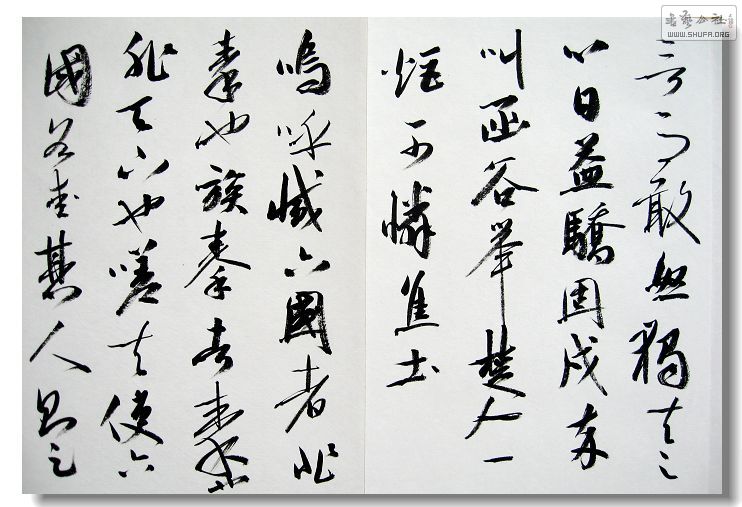 書藝公社
WWW.SHUFA.ORG
言而敢怒獨夫之
心日益驕固戍卒
叫函谷舉楚人一
炬可憐焦土
嗚呼滅六國者非
秦也族秦者秦也
非天下也嗟夫使六
國各愛其人則足